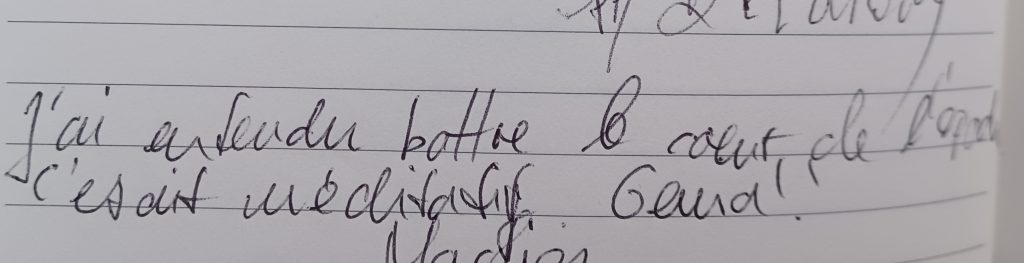 J'ai entendu battre le cœur de
c'était méditatif. Genial!